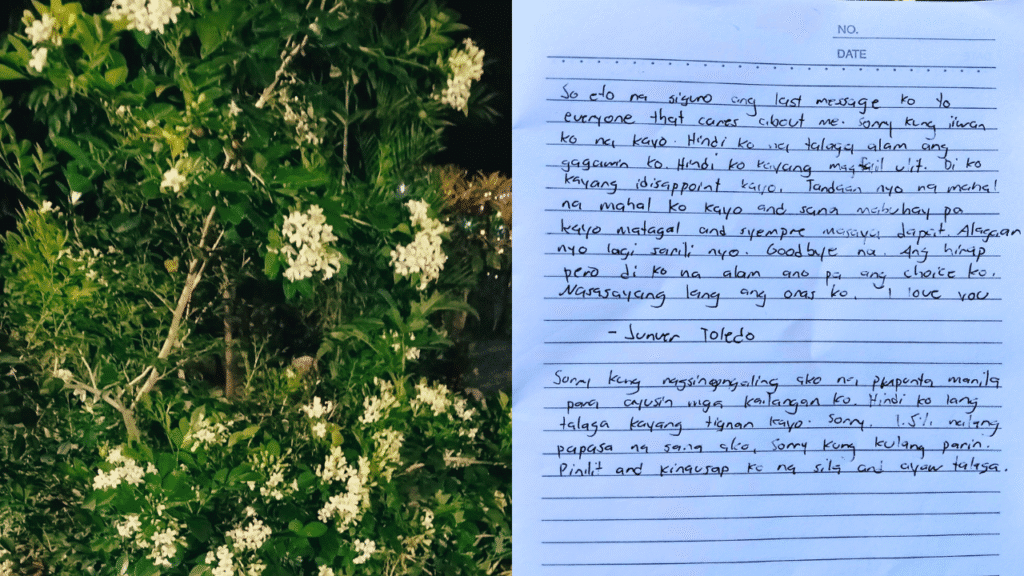 NO.
DATE
So eto na siguro ang last message ko to
everyone that cares about me. Sorry kung iiwan
ko na kayo. Hindi ko na talaga alam ang
gagawin ko. Hindi ko kayang magfail ulit. Di ko
kayang idisappoint kayo. Tandaan nyo na mahal
na mahal ko kayo and sana mabuhay pa
kayo matagal and syempre masaya dapat. Alagaan
nyo lagi sarili nyo. Goodbye na. Ang hirap
pero di ko na alam ano pa ang choice ko.
Nasasayang lang ang oras ko. I love you
- Junver Toledo
Sorry kung nagsinungaling ako na pupunta manila
para ayusin mga kailangan ko. Hindi ko lang
talaga kayang tignan kayo. Sorry. 1.5% nalang
papasa na sana ako. Sorry kung kulang parin.
Pinilit and kinausap ko na sila and ayaw talaga.